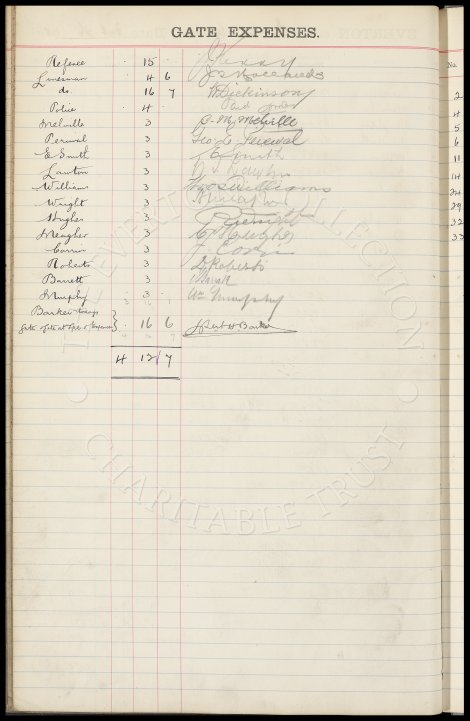 GATE EXPENSES.
No.
Referee 15
Linesman 4 6
do. 16 7 W Dickinson
Police 4
Melville 3 C. M. Melville
Percival 3 Geo E Percival
E Smith 3 E Smith
Lawton 3
Williams 3 Williams
Wright 3
Hughes 3
Meagher 3
Corrin 3
Roberts 3 Roberts
Barrett 3
Murphy 3 Wm Murphy
Barker
16 6 Barker
4 12 7
2
4
5
6
11
14
24
29
32
33
EVERTON COLLECTION
CHARITABLE TRUST